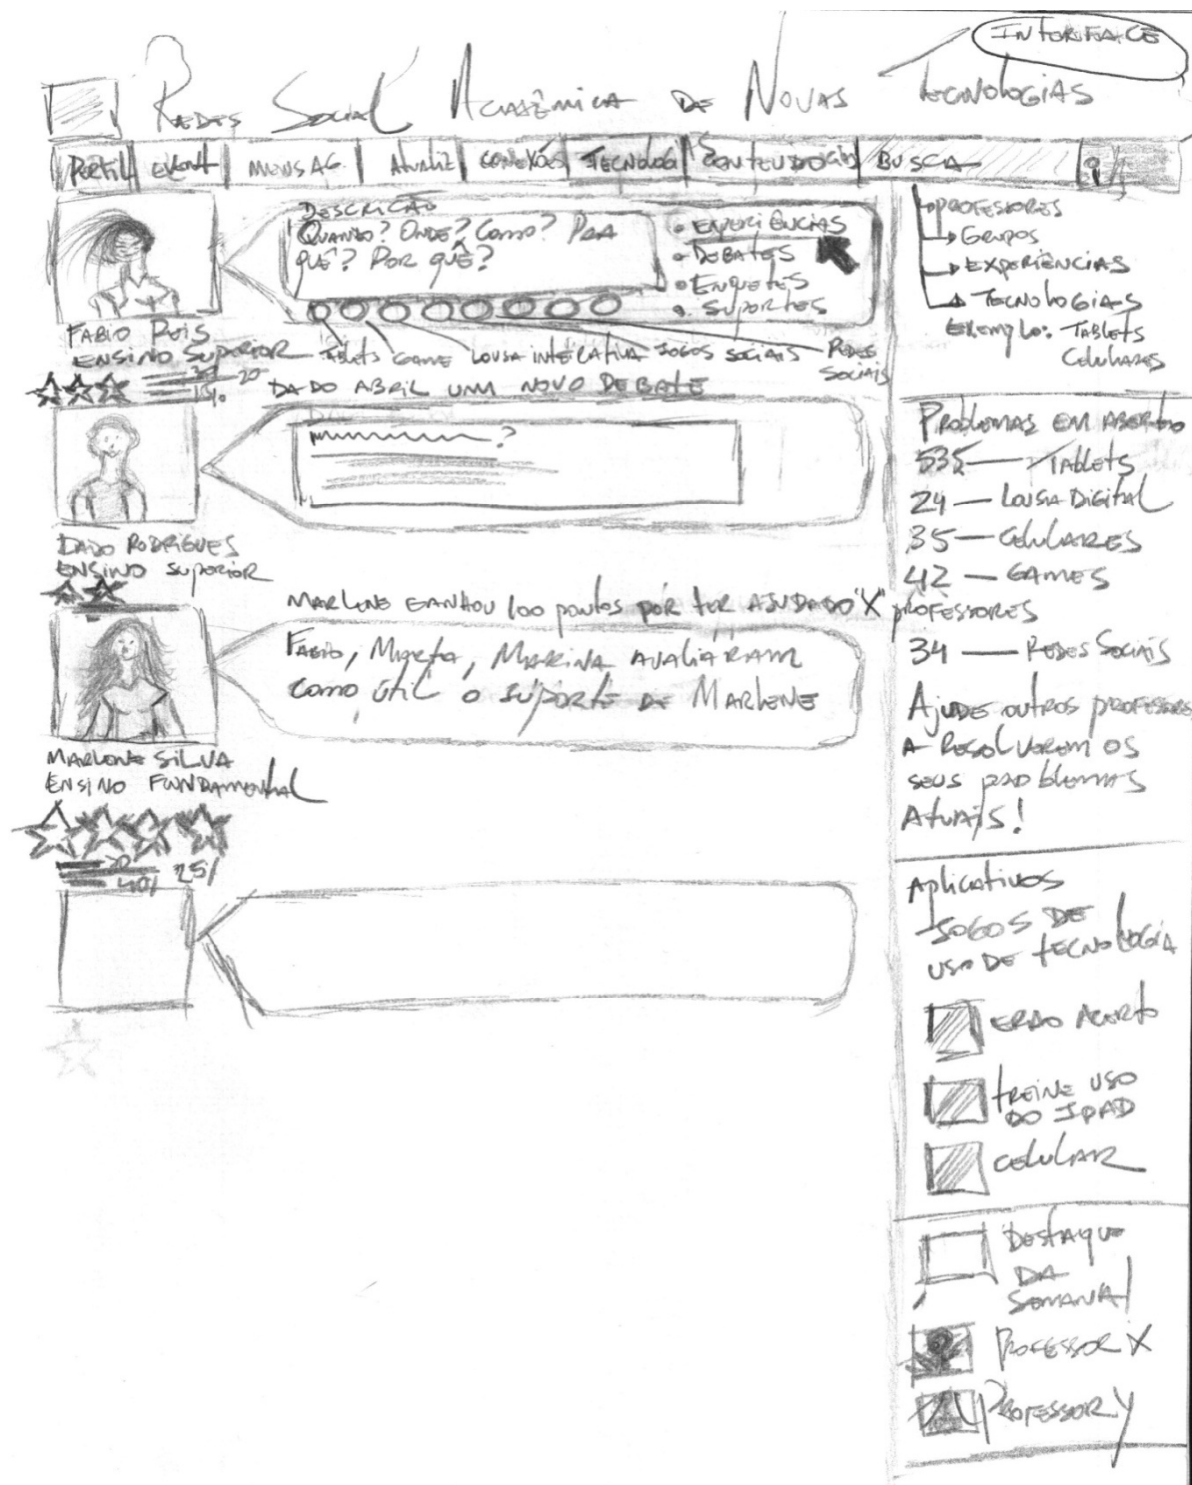 INTERFACE
REDES SOCIAL ACADÊMICA DE NOVAS TECNOLOGIAS
PERFIL EVENT MENSAG. ATUALIZ CONEXÃO TECNOLOG CONTEUDO BUSCA
DESCRIÇÃO
QUANDO? ONDE? COMO? PRA
QUÊ? POR QUÊ?
• EXPERIÊNCIAS
• DEBATES
• ENQUETES
• SUPORTES
FABIO
ENSINO SUPERIOR
TABLETS GAME LOUSA INTERATIVA JOGOS SOCIAIS REDES
SOCIAIS
20
DADO ABRIL UM NOVO DEBATE
?
DADO RODRIGUES
ENSINO SUPERIOR
MARLENE GANHOU 100 PONTOS POR TER AJUDADO "X" PROFESSORES
FABIO, MARINA AVALIARAM
COMO ÚTIL O SUPORTE DE MARLENE
MARLENE SILVA
ENSINO FUNDAMENTAL
25/
PROFESSORES
GRUPOS
EXPERIÊNCIAS
TECNOLOGIAS
EXEMPLO: TABLETS
CELULARES
PROBLEMAS EM ABERTO
535 — TABLETS
24 — LOUSA DIGITAL
35 — CELULARES
42 — GAMES
34 — REDES SOCIAIS
AJUDE OUTROS PROFESSORES
A RESOLVEREM OS
SEUS PROBLEMAS
ATUAIS!
APLICATIVOS
JOGOS DE
USO DE TECNOLOGIA
ERRO ACERTO
TREINE USO
DO IPAD
CELULAR
DESTAQUE
DA
SEMANA
PROFESSOR X
PROFESSOR Y